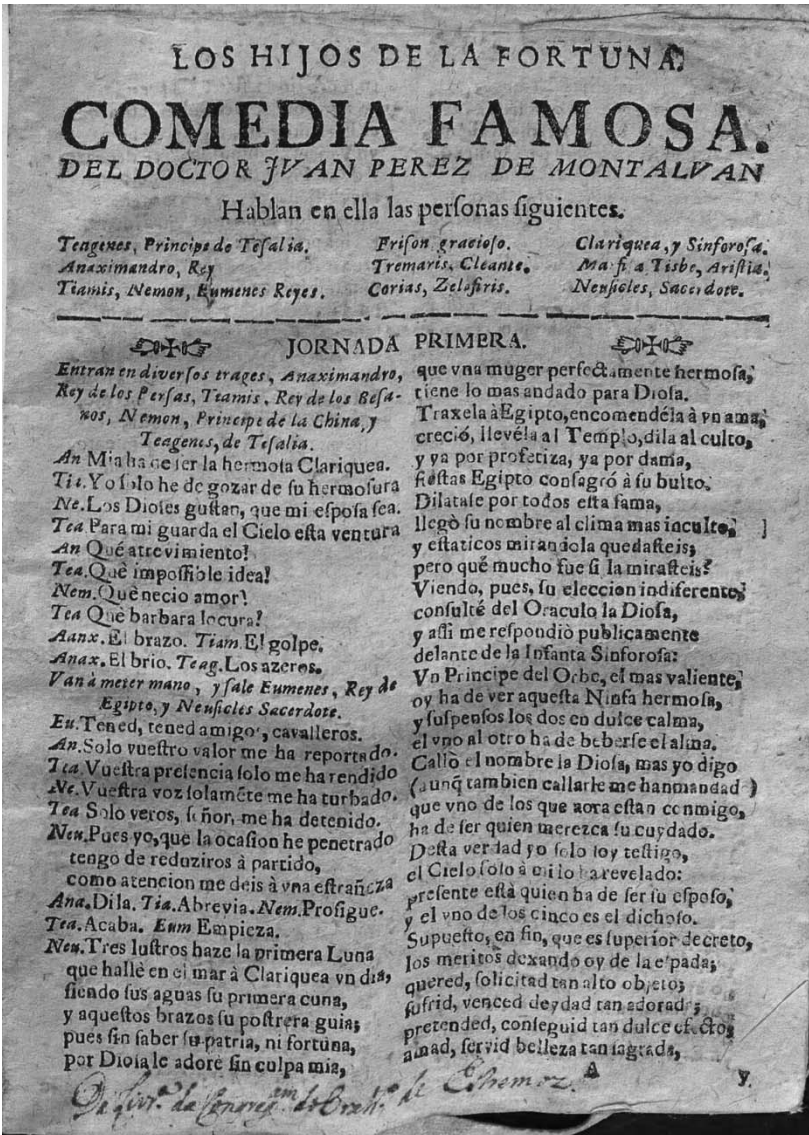 LOS HIJOS DE LA FORTUNA.
COMEDIA FAMOSA.
DEL DOCTOR JVAN PEREZ DE MONTALVAN
Hablan en ella las perſonas ſiguientes.
Teagenes, Principe de Teſalia.
Anaximandro, Rey
Tiamis, Nemon, Eumenes Reyes.
Friſon gracioſo.
Tremaris, Cleante.
Corias, Zelafiris.
Clariquea, y Sinforoſa.
Tisbe, Ariſtia.
Neuſicles, Sacerdote.
JORNADA PRIMERA.
Entran en diverſos trages, Anaximandro,
Rey de los Perſas, Tiamis, Rey de los Beſa-
nos, Nemon, Principe de la China, y
Teagenes, de Teſalia.
An Mia ha de ſer la hermoſa Clariquea.
Tia. Yo ſolo he de gozar de ſu hermoſura
Ne. Los Dioſes guſtan, que mi eſpoſa ſea.
Tea Para mi guarda el Cielo eſta ventura
An Què atrevimiento!
Tea. Què impoſſible idea!
Nem. Què necio amor!
Tea Què barbara locura!
Aanx. El brazo. Tiam. El golpe.
Anax. El brio. Teag. Los azeros.
Van à meter mano, y ſale Eumenes, Rey de
Egipto, y Neuſicles Sacerdote.
Eu. Tened, tened amigos, cavalleros.
An. Solo vueſtro valor me ha reportado.
Tea. Vueſtra preſencia ſolo me ha rendido
Ne. Vueſtra voz ſolamẽte me ha turbado.
Tea Solo veros, ſeñor, me ha detenido.
Neu. Pues yo, que la ocaſion he penetrado
tengo de reduziros à partido,
como atencion me deis à vna eſtrañeza
Ana. Dila. Tia. Abrevia. Nem. Proſigue.
Tea. Acaba. Eum Empieza.
Neu. Tres luſtros haze la primera Luna
que hallè en el mar à Clariquea vn dia,
ſiendo ſus aguas ſu primera cuna,
y aqueſtos brazos ſu poſtrera guia;
pues ſin ſaber ſu patria, ni fortuna,
por Dioſa le adorè ſin culpa mia,
que vna muger perfectamente hermoſa,
tiene lo mas andado para Dioſa.
Traxela à Egipto, encomendéla à vn ama,
creció, llevéla al Templo, dila al culto,
y ya por profetiza, ya por dama,
fieſtas Egipto conſagrò à ſu bulto.
Dilataſe por todos eſta fama,
llegò ſu nombre al clima mas inculto,
y eſtaticos mirandola quedaſteis;
pero què mucho fue ſi la miraſteis?
Viendo, pues, ſu eleccion indiferente,
conſulté del Oraculo la Dioſa,
y aſſi me reſpondiò publicamente
delante de la Infanta Sinforoſa:
Vn Principe del Orbe, el mas valiente,
oy ha de ver aqueſta Ninfa hermoſa,
y ſuſpenſos los dos en dulce calma,
el vno al otro ha de beberſe el alma.
Callò el nombre la Dioſa, mas yo digo
(aunq̃ tambien callarle me han mandado)
que vno de los que aora eſtan conmigo,
ha de ſer quien merezca ſu cuydado.
Deſta verdad yo ſolo ſoy teſtigo,
el Cielo ſolo à mi lo ha revelado:
preſente eſtà quien ha de ſer ſu eſpoſo,
y el vno de los cinco es el dichoſo.
Supueſto, en fin, que es ſuperior decreto,
los meritos dexando oy de la eſpada;
quered, ſolicitad tan alto objeto;
ſufrid, venced deydad tan adorada;
pretended, conſeguid tan dulce efecto;
amad, ſervid belleza tan ſagrada,
A
y.
Da Livr.ª da Congregam do Orath.º de Estremoz.